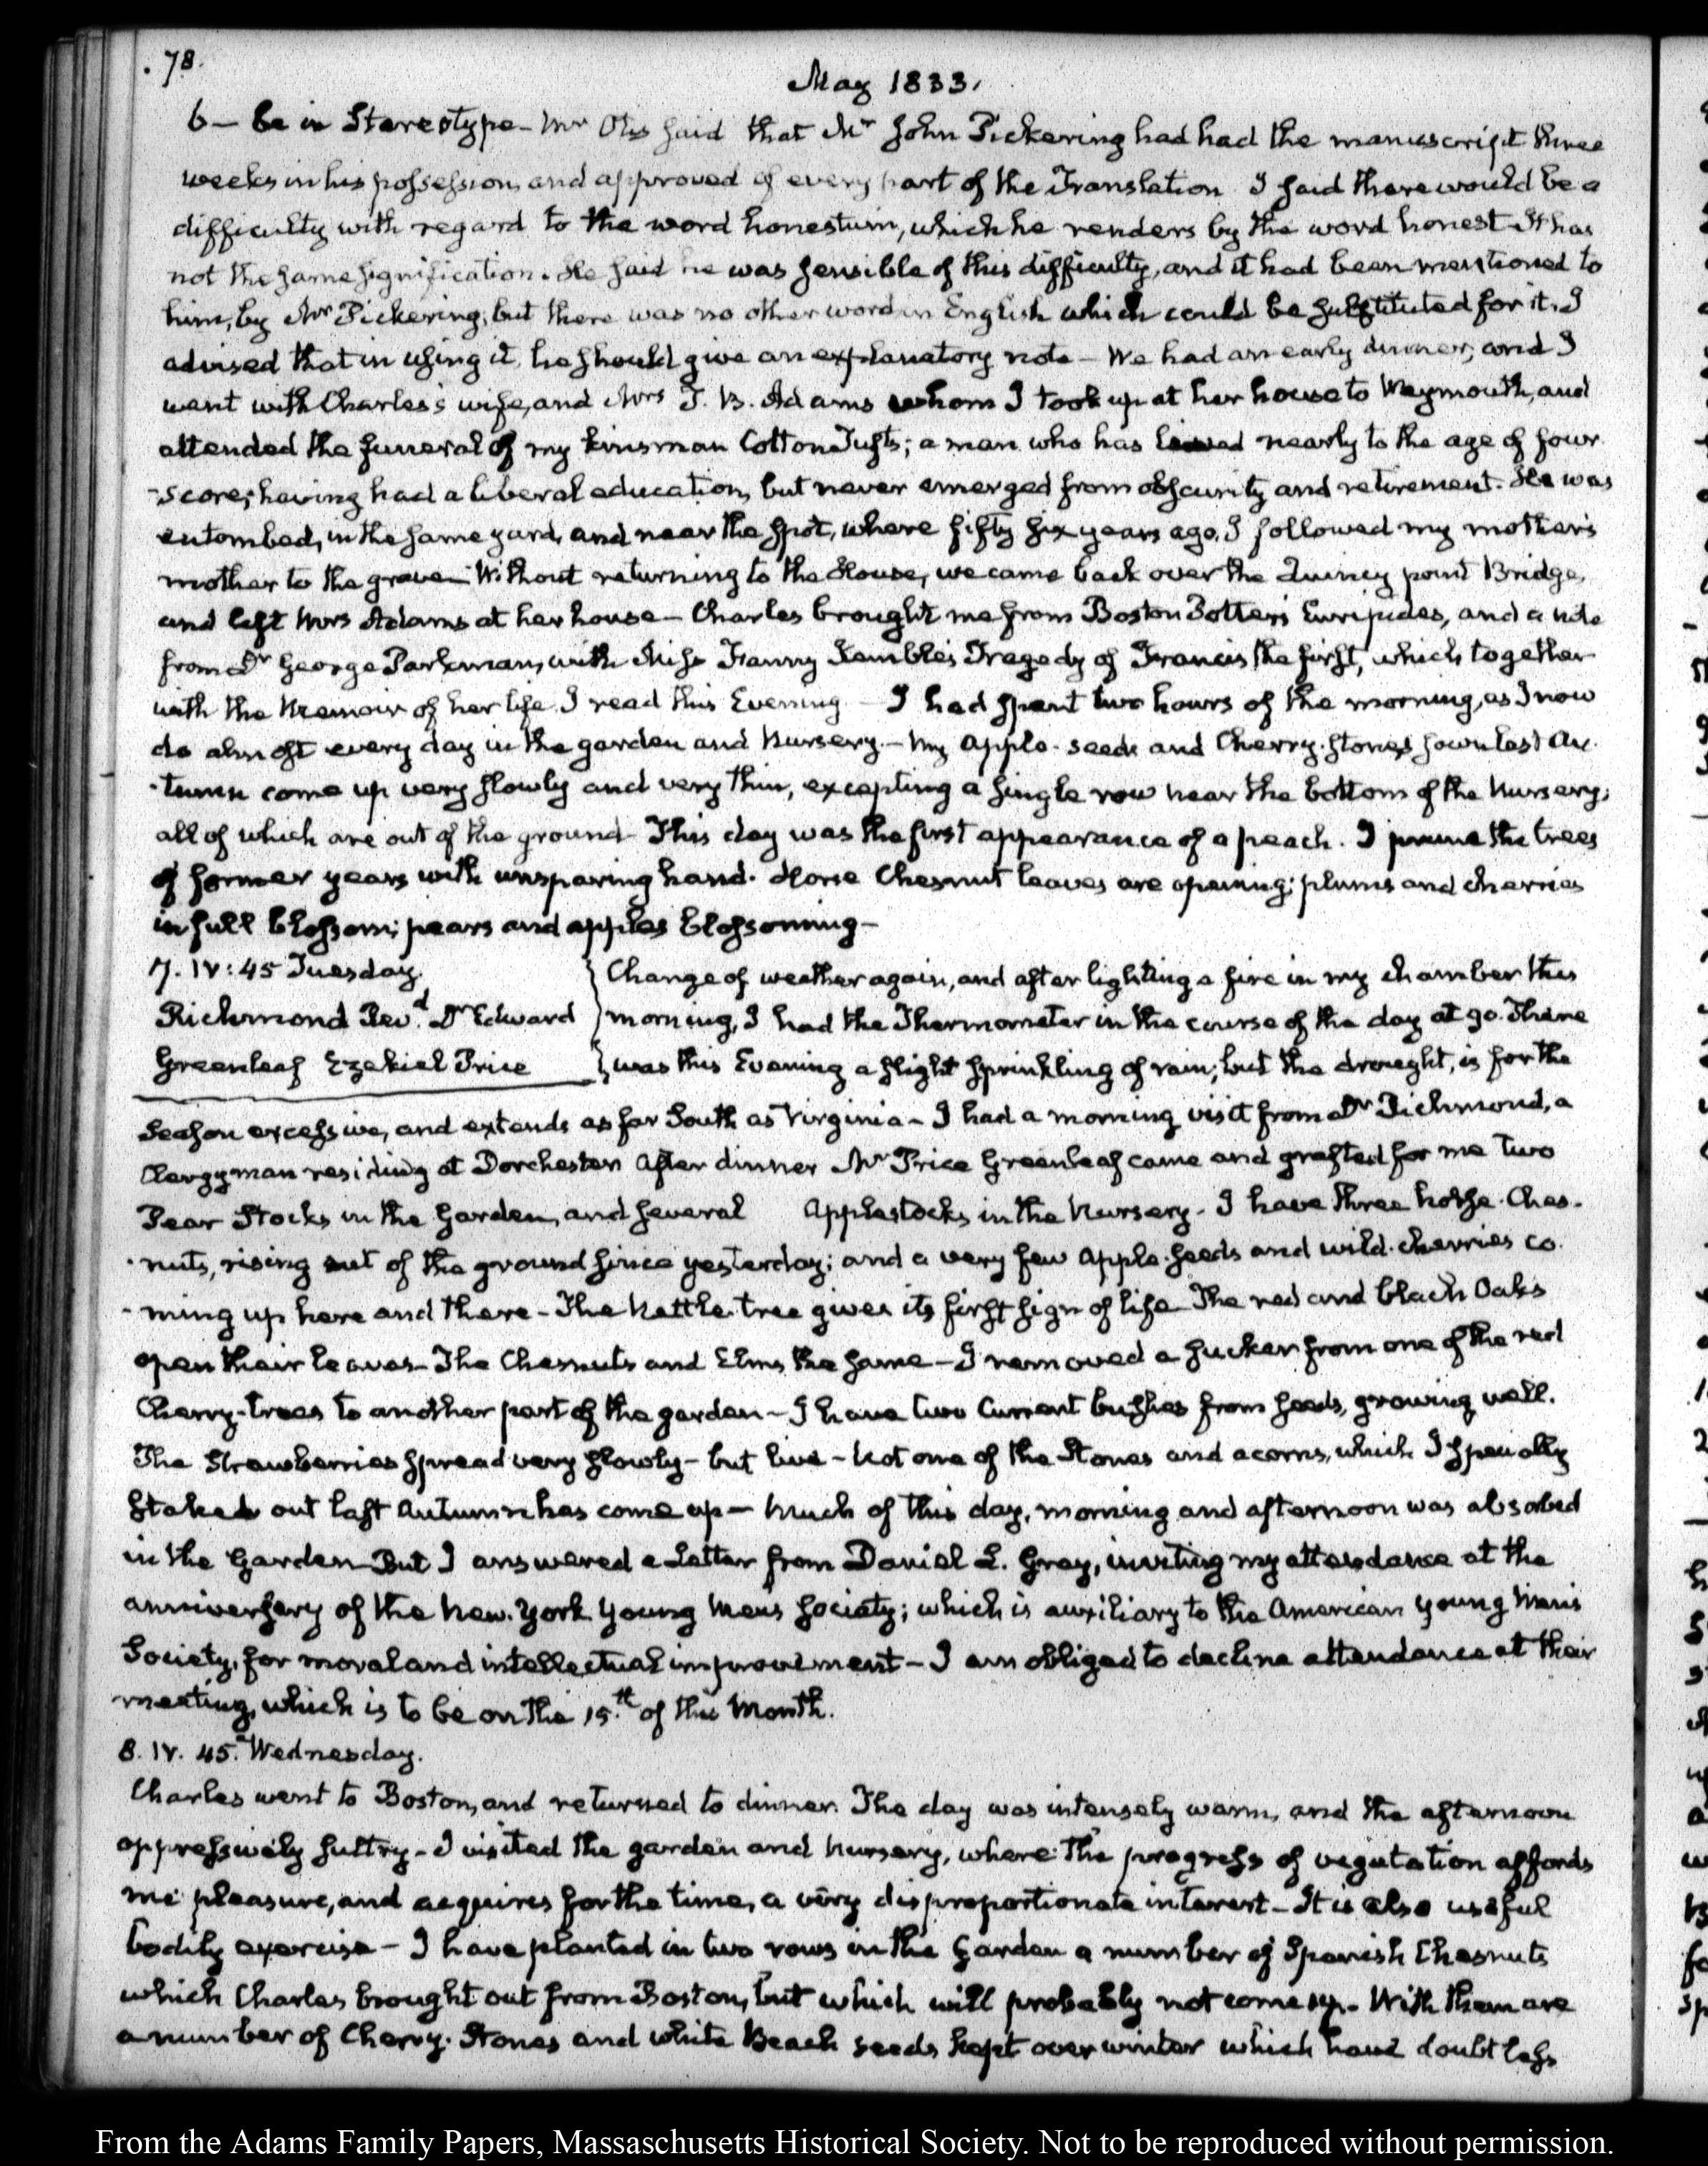 78.
May 1833.
6 — be in Stereotype — Mr Otis said that Mr John Pickering had had the manuscript three
weeks in his possession, and approved of every part of the Translation I said there would be a
difficulty with regard to the word honestum, which he renders by the word honest — It has
not the same signification. He said he was sensible of this difficulty, and it had been mentioned to
him, by Mr Pickering; but there was no other word in English which could be substituted for it. I
advised that in using it he should give an explanatory note — We had an early dinner, and I
went with Charles's wife, and Mrs T. B. Adams whom I took up at her house to Weymouth, and
attended the funeral of my kinsman Cotton Tufts; a man who has lived nearly to the age of four
-score; having had a liberal education, but never emerged from obscurity and retirement. He was
entombed, in the same yard, and near the spot, where fifty six years ago, I followed my mother's
mother to the grave — Without returning to the House, we came back over the Quincy point Bridge,
and left Mrs Adams at her house — Charles brought me from Boston Potter's Euripides, and a note
from Dr George Parkman, with Miss Fanny Kemble's Tragedy of Francis the first, which together
with the Memoir of her life I read this Evening — I had spent two hours of the morning, as I now
do almost every day in the garden and Nursery. — My apple-seeds and Cherry-stones sown last Au-
-tumn come up very slowly and very thin, excepting a single row near the bottom of the Nursery;
all of which are out of the ground — This day was the first appearance of a peach. I prune the trees
of former years with unsparing hand. Horse Chesnut leaves are opening; plums and cherries
in full blossom; pears and apples blossoming —
7. IV: 45 Tuesday.
Richmond Revd. Dr Edward
Greenleaf Ezekiel Price
Change of weather again, and after lighting a fire in my chamber this
morning, I had the Thermometer in the course of the day at 90. There
was this Evening a slight sprinkling of rain; but the drought, is for the
Season excessive, and extends as far South as Virginia — I had a morning visit from Dr Richmond, a
Clergyman residing at Dorchester After dinner Mr Price Greenleaf came and grafted for me two
Pear Stocks in the Garden, and several Applestocks in the Nursery. I have three horse-Ches-
-nuts, rising out of the ground since yesterday; and a very few Apple-seeds and wild-cherries co-
-ming up here and there — The Nettle-tree gives its first sign of life The red and black Oaks
open their leaves — The Chesnuts and Elms the same — I removed a sucker from one of the red
Cherry-trees to another part of the garden — I have two Currant bushes from seeds, growing well.
The Strawberries spread very slowly — but live — Not one of the Stones and acorns, which I specially
staked out last Autumn has come up — Much of this day, morning and afternoon was absorbed
in the Garden — But I answered a Letter from Daniel L. Gray, inviting my attendance at the
anniversary of the New-York Young Men's Society; which is auxiliary to the American young Men's
Society, for moral and intellectual improvement — I am obliged to decline attendance at their
meeting, which is to be on the 15th of this Month.
8. IV. 45. Wednesday.
Charles went to Boston, and returned to dinner. The day was intensely warm, and the afternoon
oppressively sultry — I visited the garden and Nursery, where the progress of vegetation affords
me pleasure, and acquires for the time, a very disproportionate interest — It is also useful
bodily exercise — I have planted in two rows in the Garden a number of Spanish Chesnuts
which Charles brought out from Boston, but which will probably not come up. With them are
a number of Cherry-Stones and white Beach seeds kept over winter which have doubtless
From the Adams Family Papers, Massachusetts Historical Society. Not to be reproduced without permission.